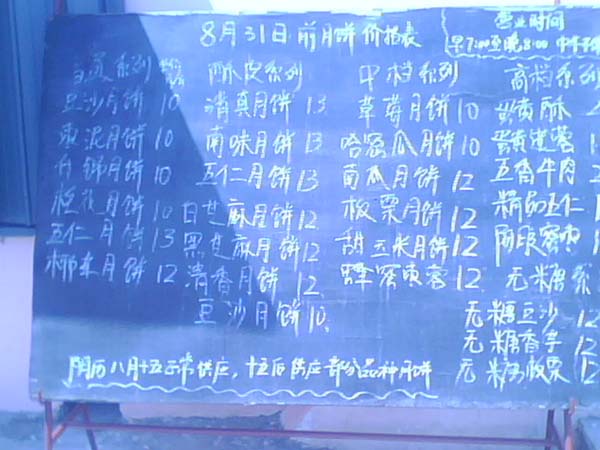 8月31日前月饼价格表
营业时间
早7:00至晚8:00 中午不休
系列 酥皮系列 中档系列 高档系列
豆沙月饼 10 清真月饼 13 草莓月饼 10 蛋黄酥
枣泥月饼 10 南味月饼 13 哈密瓜月饼 10 蛋黄莲蓉
月饼 10 五仁月饼 13 南瓜月饼 12 五香牛肉
月饼 10 白芝麻月饼 12 板栗月饼 12 精品五仁
五仁月饼 13 黑芝麻月饼 12 甜玉米月饼 12 阿胶蜜枣
椰东月饼 12 清香月饼 12 蜂蜜枣蓉 12 无糖系
豆沙月饼 10 无糖豆沙 12
无糖香芋 12
阴历八月十五正常供应，十五后供应部分品种月饼 无糖板栗 12